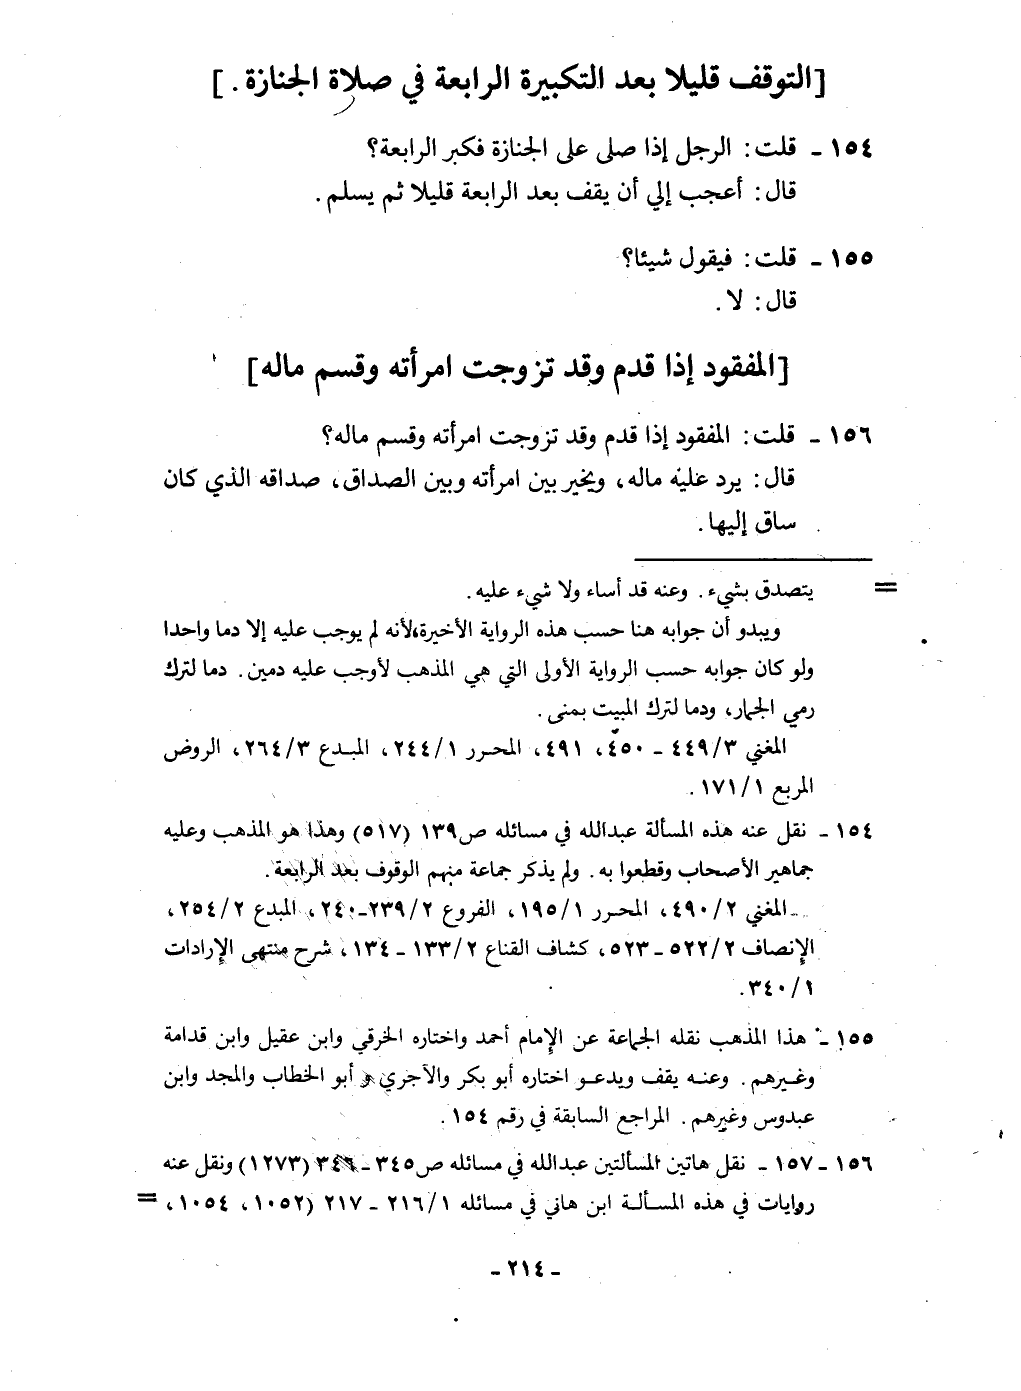 [التوقف قليلا بعد التكبيرة الرابعة في صلاة الجنازة . ]
١٥٤ ـ قلت : الرجل إذا صلى على الجنازة فكبر الرابعة؟
قال : أعجب إلي أن يقف بعد الرابعة قليلا ثم يسلم .
١٥٥ ـ قلت : فيقول شيئا؟
قال : لا .
[المفقود إذا قدم وقد تزوجت امرأته وقسم ماله]
١٥٦ ـ قلت : المفقود إذا قدم وقد تزوجت امرأته وقسم ماله؟
قال : يرد عليه ماله، ويخير بين امرأته وبين الصداق، صداقه الذي كان
ساق إليها .
= يتصدق بشيء . وعنه قد أساء ولا شيء عليه .
ويبدو أن جوابه هنا حسب هذه الرواية الأخيرة،لأنه لم يوجب عليه إلا دما واحدا
ولو كان جوابه حسب الرواية الأولى التي هي المذهب لأوجب عليه دمين . دما لترك
رمي الجمار، ودما لترك المبيت بمنى .
المغني ٤٤٩/٣ ـ ٤٥٠، ٤٩١، المحرر ٢٤٤/١، المبدع ٢٦٤/٣، الروض
المربع ١٧١/١ .
١٥٤ ـ نقل عنه هذه المسألة عبدالله في مسائله ص١٣٩ (٥١٧) وهذا هو المذهب وعليه
جماهير الأصحاب وقطعوا به . ولم يذكر جماعة منهم الوقوف بعد الرابعة .
المغني ٤٩٠/٢، المحرر ١٩٥/١، الفروع ٢٣٩/٢-٢٤٠، المبدع ٢٥٤/٢،
الإنصاف ٥٢٢/٢ ـ ٥٢٣، كشاف القناع ١٣٣/٢ ـ ١٣٤، شرح منتهى الإرادات
٣٤٠/١ .
١٥٥ ـ هذا المذهب نقله الجماعة عن الإمام أحمد واختاره الخرقي وابن عقيل وابن قدامة
وغيرهم . وعنه يقف ويدعو اختاره أبو بكر والآجري و أبو الخطاب والمجد وابن
عبدوس وغيرهم . المراجع السابقة في رقم ١٥٤ .
١٥٦ ـ ١٥٧ ـ نقل هاتين المسألتين عبدالله في مسائله ص٣٤٥ ـ ٣٤٦ (١٢٧٣) ونقل عنه
روايات في هذه المسألة ابن هاني في مسائله ٢١٦/١ ـ ٢١٧ (١٠٥٢، ١٠٥٤، =
ـ ٢١٤ ـ